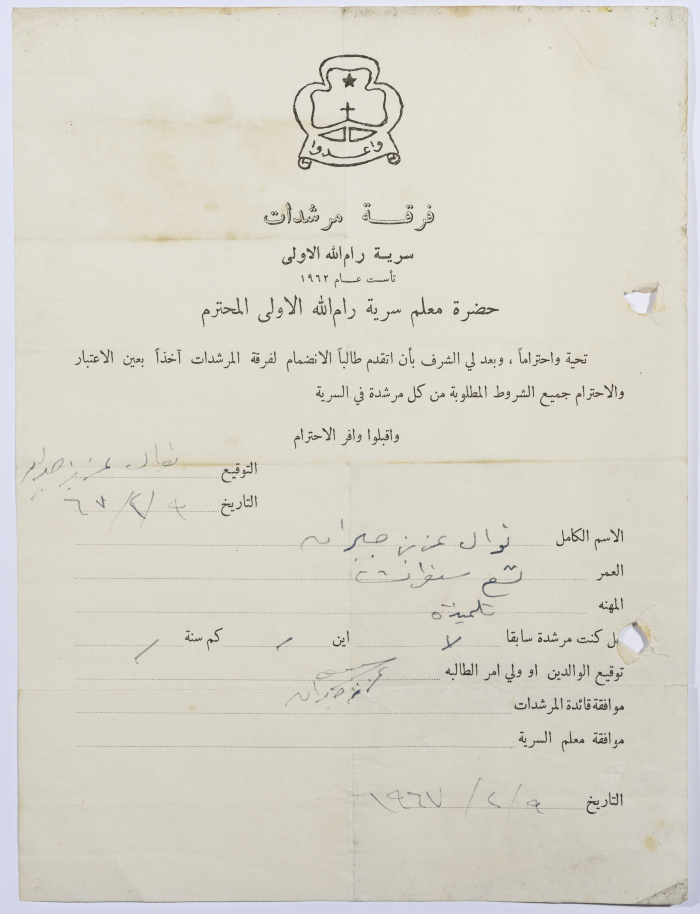 واعدوا
فرقة مرشدات
سرية رام الله الاولى
تأسست عام ١٩٦٢
حضرة معلم سرية رام الله الاولى المحترم
تحية واحتراماً ، وبعد لي الشرف بأن اتقدم طالباً الانضمام لفرقة المرشدات آخذاً بعين الاعتبار
والاحترام جميع الشروط المطلوبة من كل مرشدة في السرية
واقبلوا وافر الاحترام
التوقيع نوال عزيز جبران
التاريخ ٩/٢/٦٧
الاسم الكامل نوال عزيز جبران
العمر تسع سنوات
المهنه تلميذة
هل كنت مرشدة سابقا لا اين / كم سنة /
توقيع الوالدين او ولي امر الطالبه عزيز جبران
موافقة قائدة المرشدات
موافقة معلم السرية
التاريخ ٩/٢/١٩٦٧